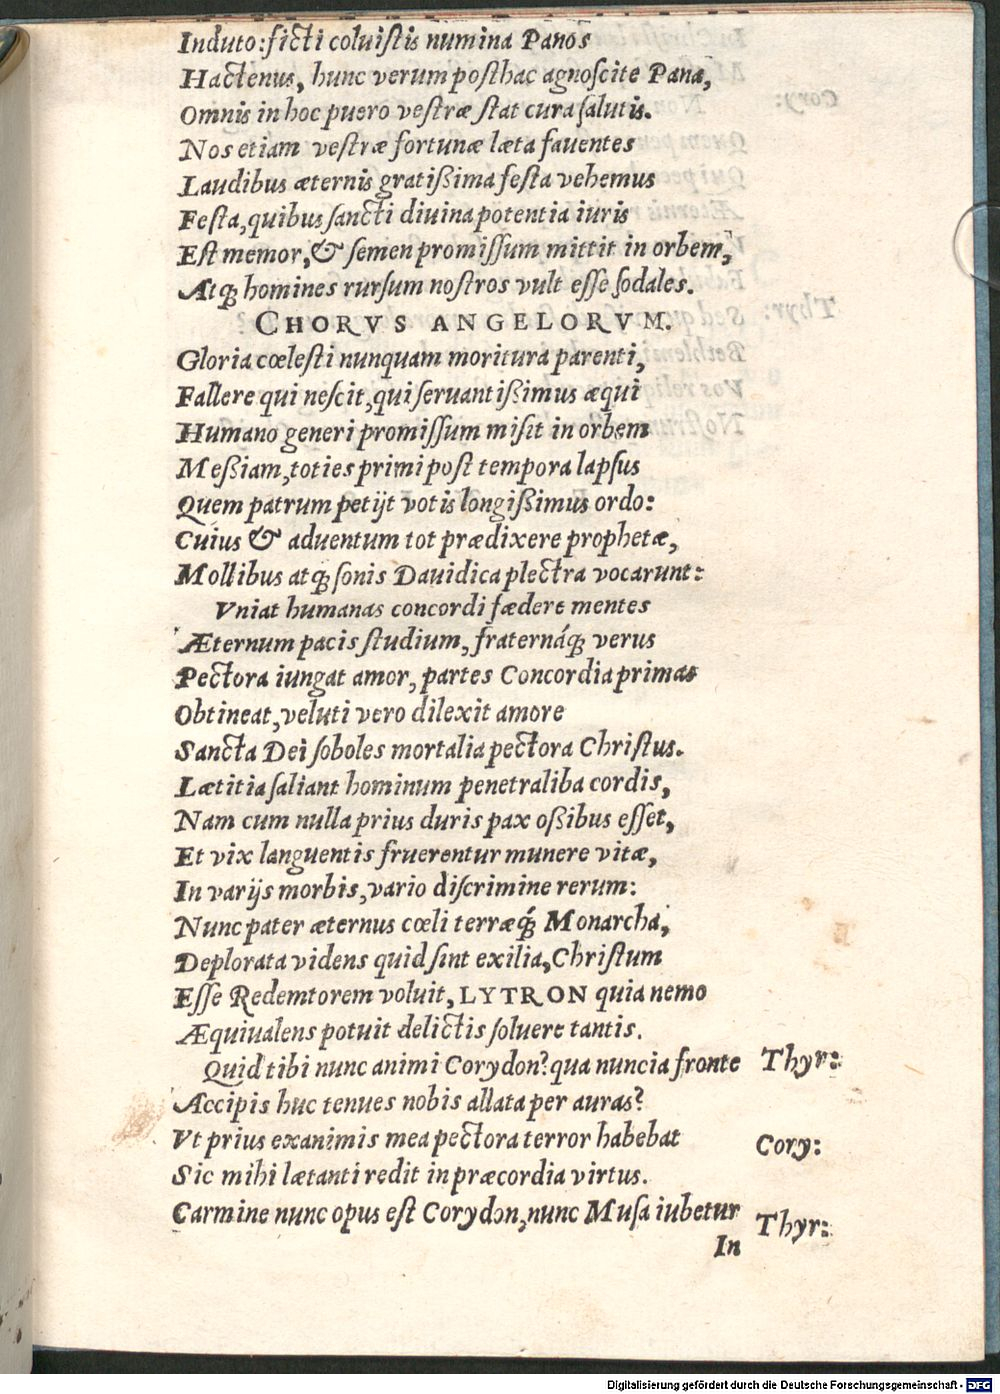 Induto: ficti coluiſtis numina Panos
Hactenus, hunc verum poſthac agnoſcite Pana,
Omnis in hoc puero veſtræ ſtat cura ſalutis.
Nos etiam veſtræ fortunæ læta fauentes
Laudibus æternis gratißima feſta vehemus
Feſta, quibus ſancti diuina potentia iuris
Eſt memor, & ſemen promiſſum mittit in orbem,
Atq́ homines rurſum noſtros vult eſſe ſodales.
CHORVS ANGELORVM.
Gloria cœleſti nunquam moritura parenti,
Fallere qui neſcit, qui ſeruantißimus æqui
Humano generi promiſſum miſit in orbem
Meßiam, toties primi poſt tempora lapſus
Quem patrum petijt votis longißimus ordo:
Cuius & aduentum tot prædixere prophetæ,
Mollibus atq́ ſonis Dauidica plectra vocarunt:
Vniat humanas concordi fædere mentes
Æternum pacis ſtudium, fraternáq́ verus
Pectora iungat amor, partes Concordia primas
Obtineat, veluti vero dilexit amore
Sancta Dei ſoboles mortalia pectora Chriſtus.
Lætitia ſaliant hominum penetraliba cordis,
Nam cum nulla prius duris pax oßibus eſſet,
Et vix languentis fruerentur munere vitæ,
In varijs morbis, vario diſcrimine rerum:
Nunc pater æternus cœli terræq́ Monarcha,
Deplorata videns quid ſint exilia, Chriſtum
Eſſe Redemtorem voluit, LYTRON quia nemo
Æquiualens potuit delictis ſoluere tantis.
Quid tibi nunc animi Corydon? qua nuncia fronte Thyr:
Accipis huc tenues nobis allata per auras?
Vt prius exanimis mea pectora terror habebat Cory:
Sic mihi lætanti redit in præcordia virtus.
Carmine nunc opus eſt Corydon, nunc Muſa iubetur Thyr:
In
Digitalisierung gefördert durch die Deutsche Forschungsgemeinschaft - DFG